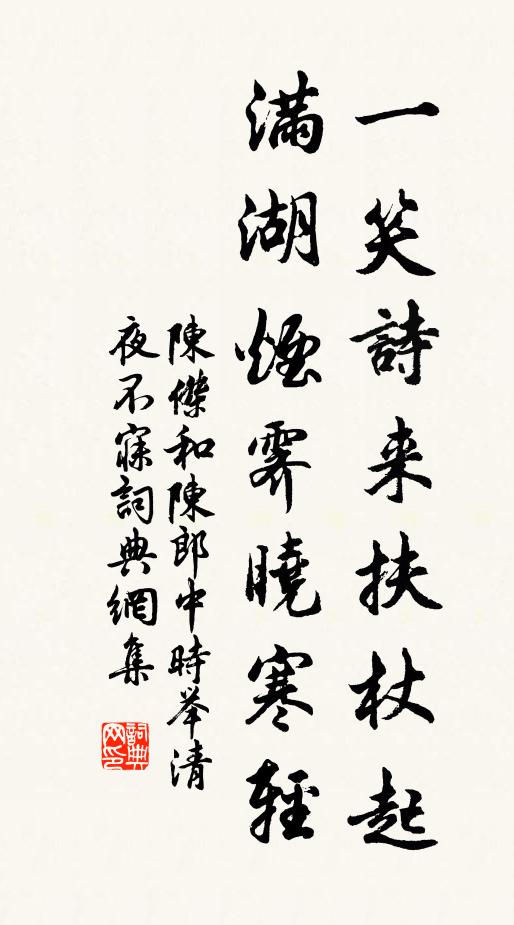 一笑詩来扶杖起
滿湖煙霽曉寒輕
陳傑和陳郎中時举清
夜不寐詞典網集
詞典
网印